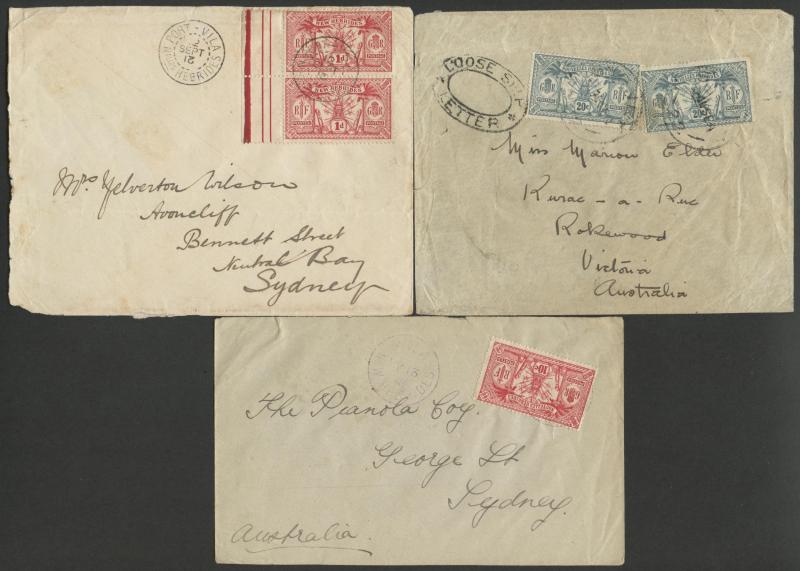 PORT-VILA
2
SEPT
12
NEW HEBRIDES
NEW HEBRIDES
RF
1d
GR
POSTAGE
POSTAGE
NEW HEBRIDES
RF
1d
GR
POSTAGE
POSTAGE
Mrs Yelverton Wilson
Avoncliff
Bennett Street
Neutral Bay
Sydney
LOOSE SHIP
LETTER
RF
20c
GR
20c
Miss Marion Elder
Kurac-a-Ruc
Rokewood
Victoria
Australia
10c
RF
The Pianola Coy.
George St
Sydney
Australia